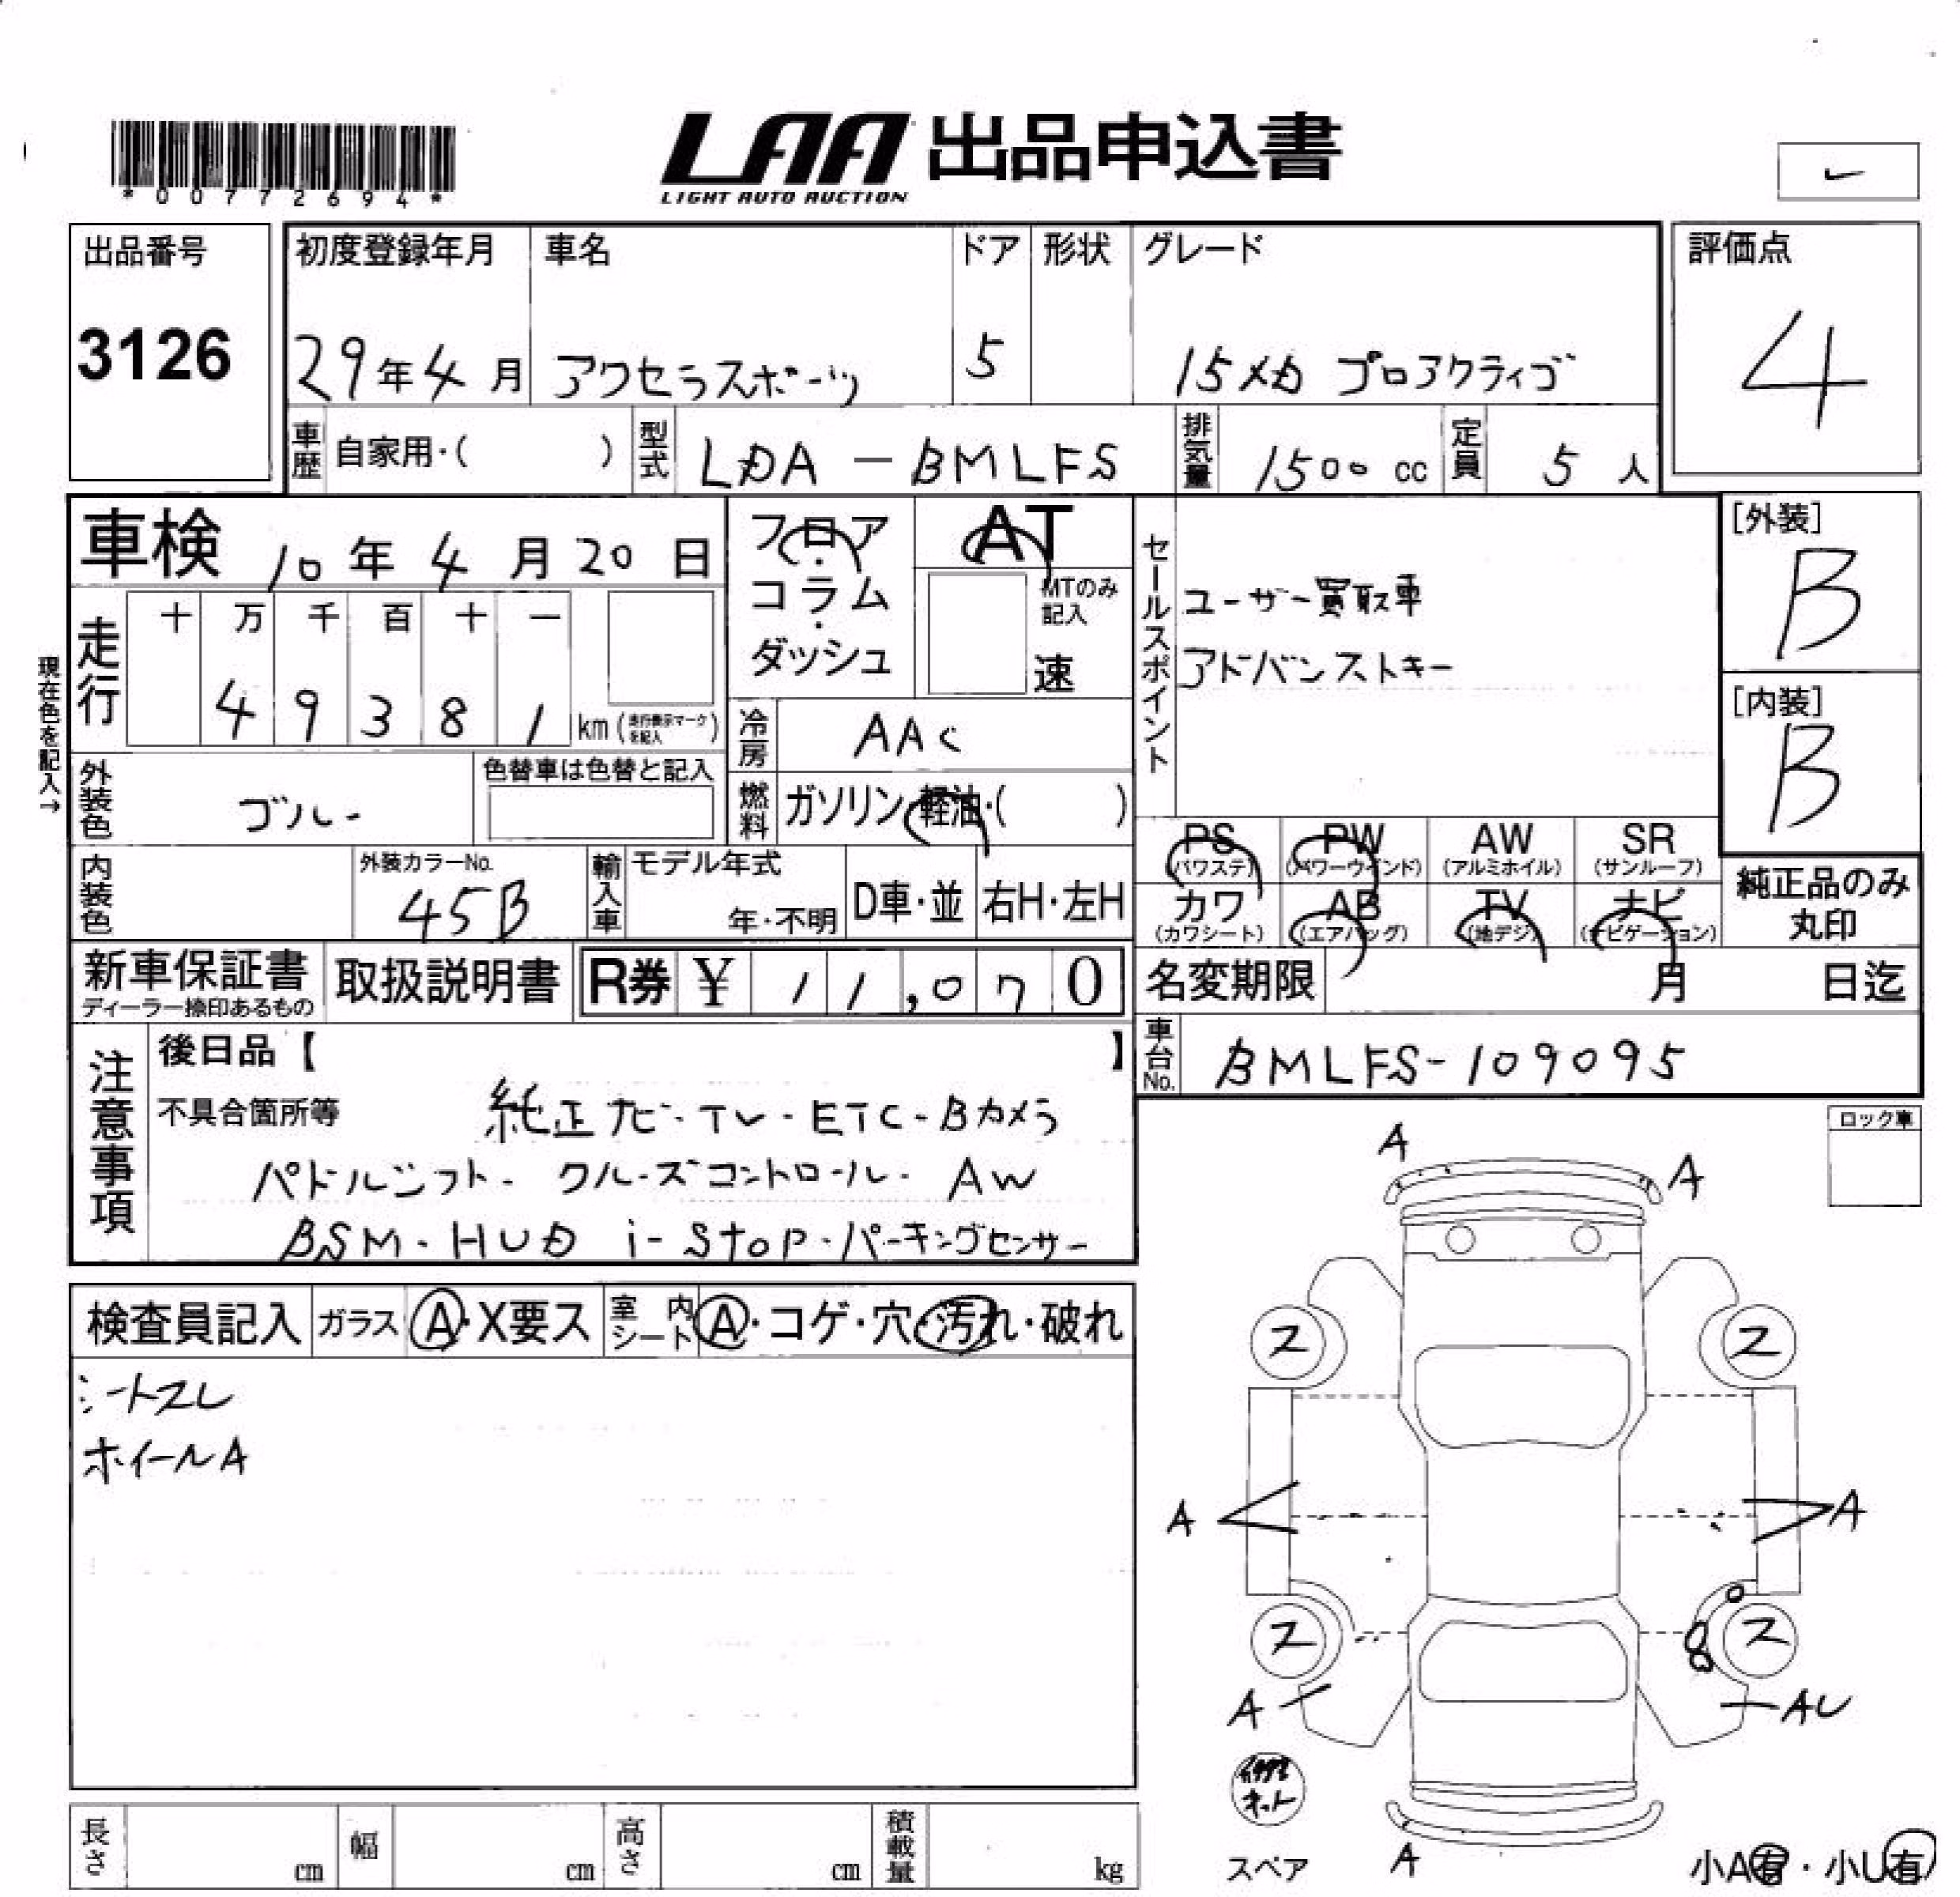 *00772694*
LAA 出品申込書
LIGHT AUTO AUCTION
出品番号
3126
初度登録年月
29年4月
車名
アクセラスポーツ
ドア
5
形状
グレード
15メカ プロアクティブ
評価点
4
車歴 自家用・( )
型式 LDA-BMLFS
排気量 1500 cc
定員 5 人
車検 10年4月20日
フロア・コラム・ダッシュ
AT
MTのみ記入
速
セールスポイント
ユーザー買取車
アドバンストキー
[外装]
B
[内装]
B
現在色を記入→
走行
十 万 千 百 十 一
4 9 3 8 1 km (走行表示マークを記入)
冷房 AAC
外装色 ブルー
色替車は色替と記入
燃料 ガソリン・軽油・( )
PS (パワステ)
PW (パワーウインド)
AW (アルミホイル)
SR (サンルーフ)
カワ (カワシート)
AB (エアバッグ)
TV (地デジ)
ナビ (ナビゲーション)
純正品のみ丸印
内装色
外装カラーNo.
45B
輸入車
モデル年式
年・不明
D車・並
右H・左H
新車保証書
ディーラー捺印あるもの
取扱説明書
R券 ¥ 11,070
名変期限 月 日迄
車台No. BMLFS-109095
注意事項
後日品【 】
不具合箇所等
純正ナビ・TV・ETC・Bカメラ
パドルシフト・クルーズコントロール・AW
BSM・HUD i-stop・パーキングセンサー
ロック車
検査員記入
ガラス A・X要ス
室内シート A・コゲ・穴・汚れ・破れ
シートスレ
ホイールA
A
A
ス
ス
A
A
ス
ス
A
AU
キット
スペア
A
小A有・小U有
長さ cm
幅 cm
高さ cm
積載量 kg